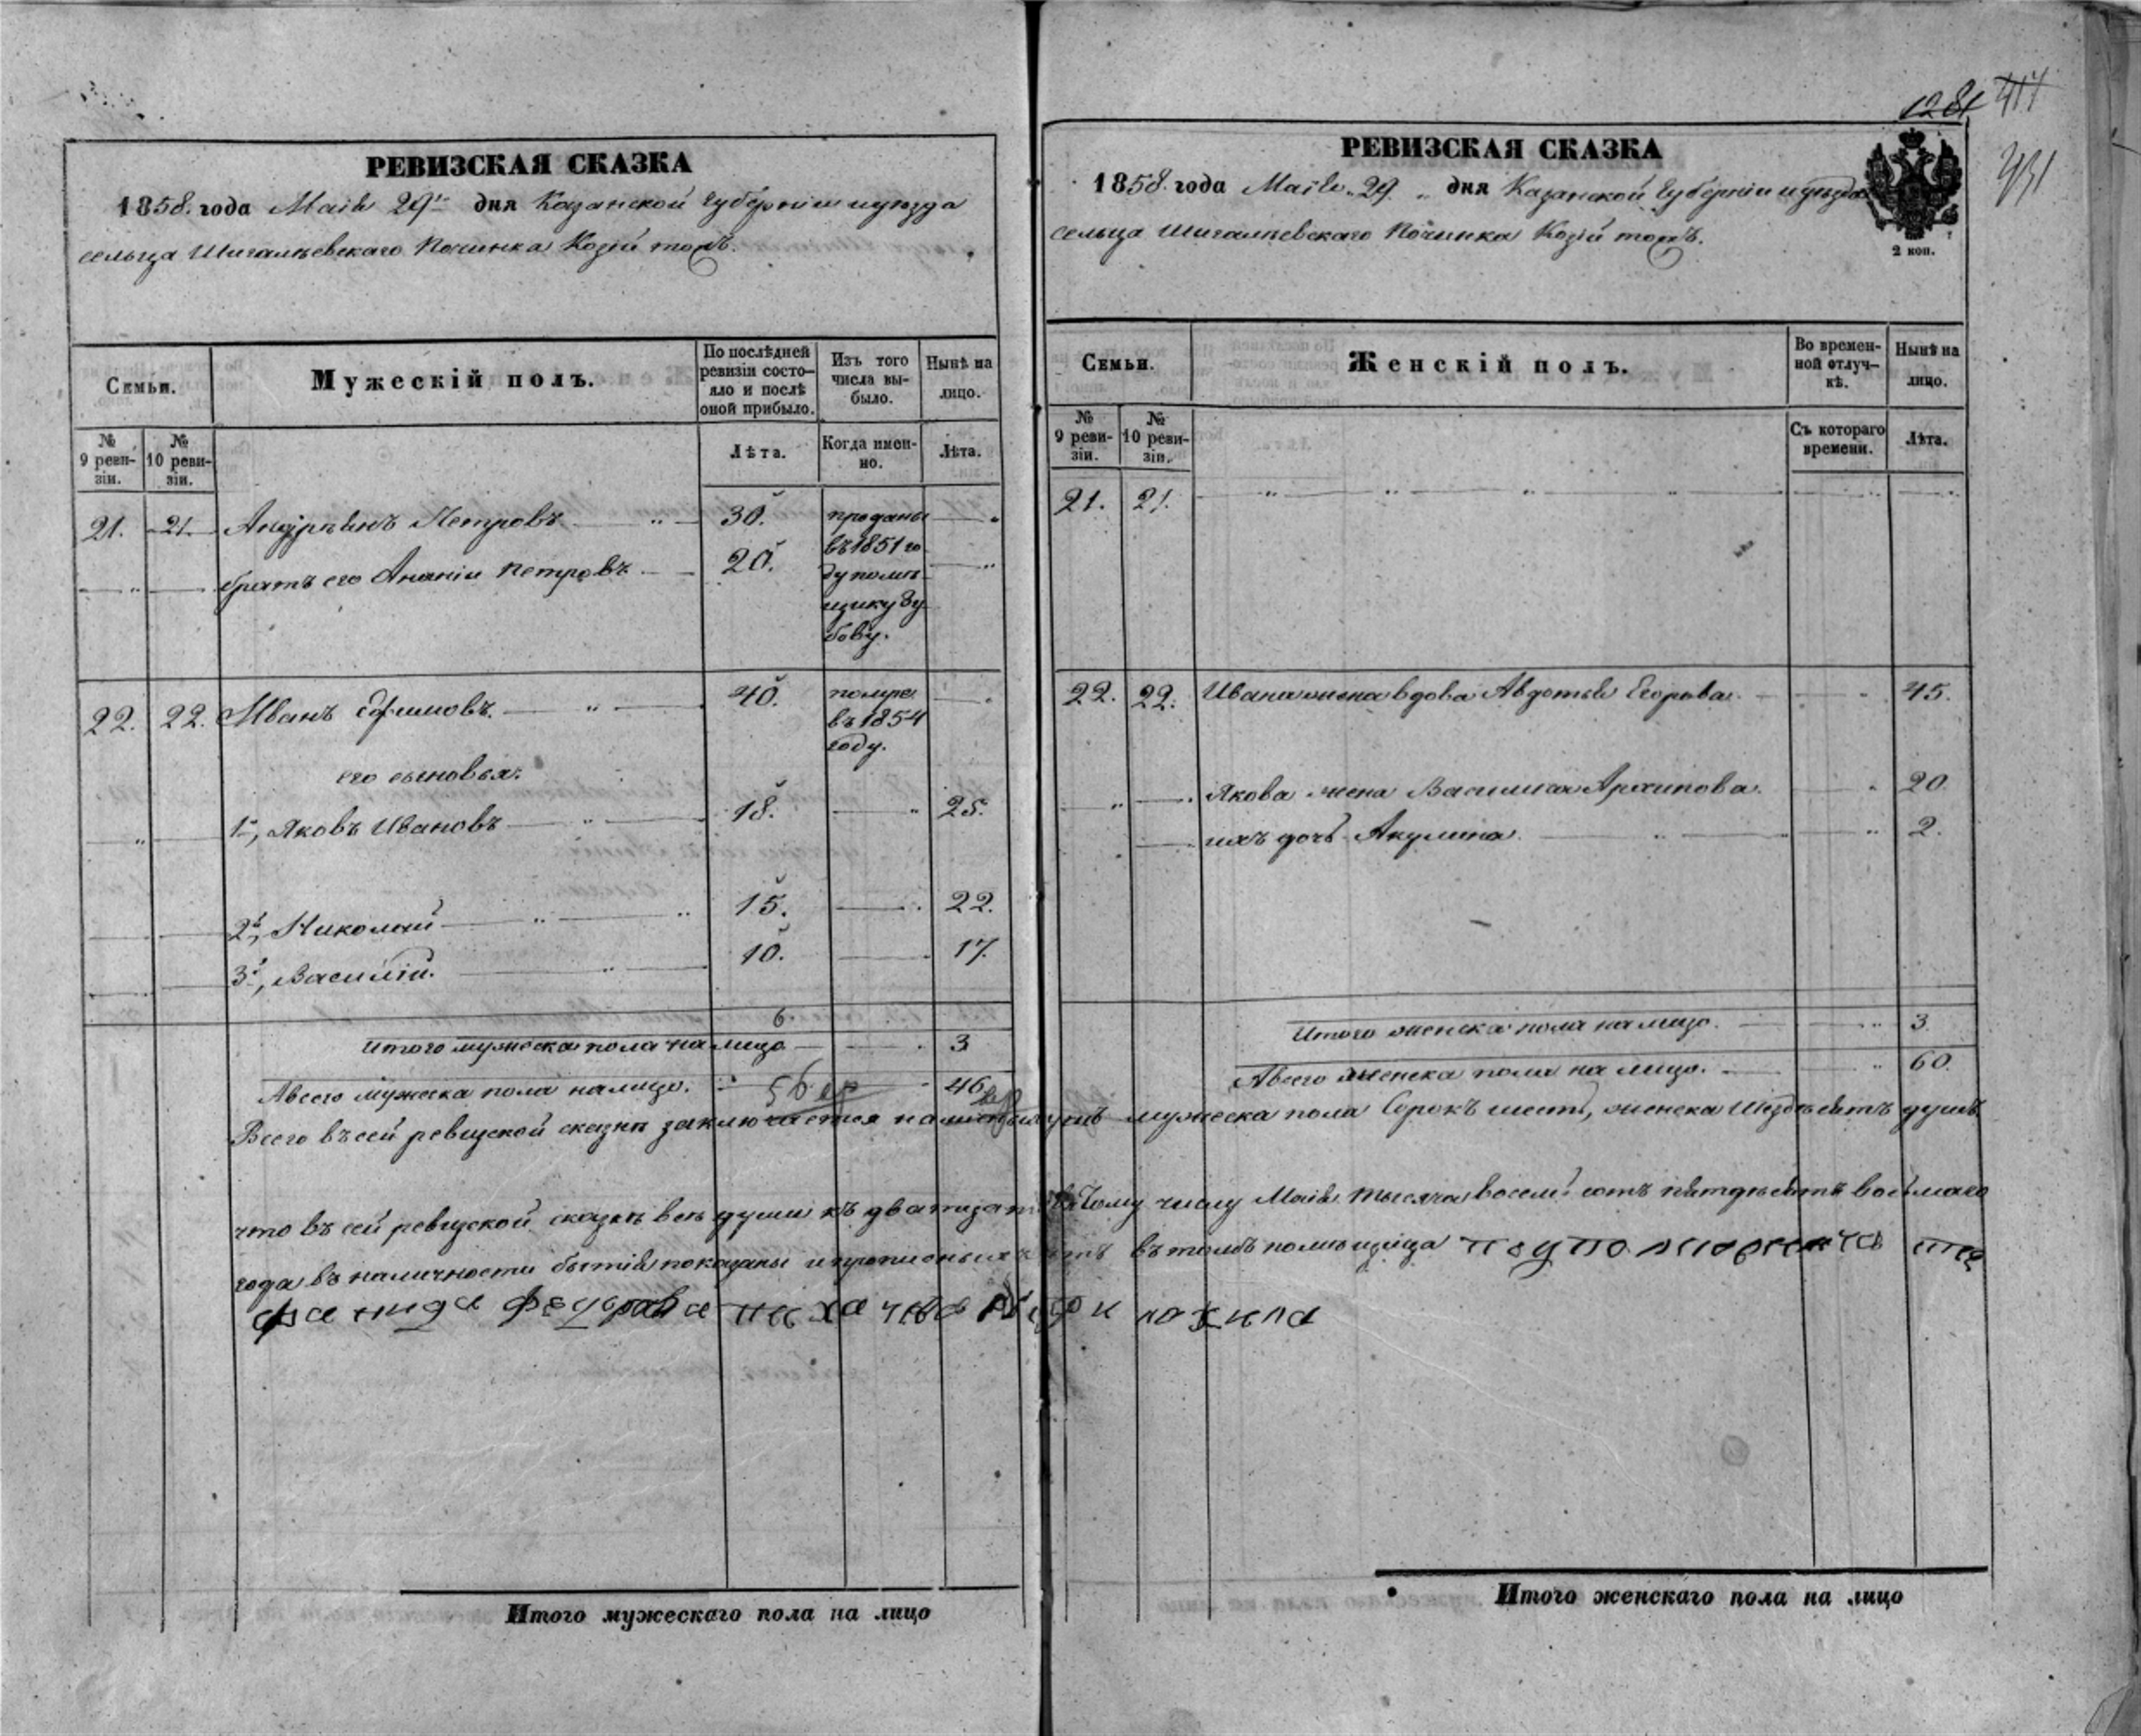 РЕВИЗСКАЯ СКАЗКА
1858. года Маія 29го дня Казанской губерніи и уѣзда
сельца Шигалѣевскаго Починка Козій тожъ.
Семьи.
Мужескій полъ.
По послѣдней ревизіи состояло и послѣ оной прибыло.
Изъ того числа выбыло.
Нынѣ на лицо.
№ 9 ревизіи.
№ 10 ревизіи.
Лѣта.
Когда именно.
Лѣта.
21. 21. Петровъ 30. проданы
въ 1851 го
братъ его Ананій Петровъ 20. ду помѣ
щику Зу
бову.
22. 22. Иванъ Ефимовъ. 40. помре
въ 1854
году.
его сыновья.
1й, Яковъ Ивановъ 18. 25.
2й, Николай 15. 22.
3й, Василій. 10. 17.
6.
Итого мужеска пола на лицо 3
А всего мужеска пола на лицо. 46
Всего въ сей ревизской сказкѣ заключается мужеска пола Сорокъ шесть, женска Шездѣсятъ душъ
что въ сей ревизской сказкѣ всѣ души къ числу Маія тысяча восемь сотъ пятдѣсятъ восьмаго
года въ наличности бытія показаны и прописныхъ нѣтъ въ томъ помѣщица
Федорава руку приложила
Итого мужескаго пола на лицо
1281
417
431
РЕВИЗСКАЯ СКАЗКА
1858. года Маія 29. дня Казанской Губерніи и уѣзда
сельца Шигалѣевскаго Починка Козій тожъ.
2 коп.
Семьи.
Женскій полъ.
Во временной отлучкѣ.
Нынѣ на лицо.
№ 9 ревизіи.
№ 10 ревизіи.
Съ котораго времени.
Лѣта.
21. 21.
22. 22. Ивана жена вдова Авдотья Егорова 45.
Якова жена Василиса Архипова. 20.
ихъ дочь Акулина 2.
Итого женска пола на лицо. 3.
А всего женска пола на лицо. 60.
Итого женскаго пола на лицо